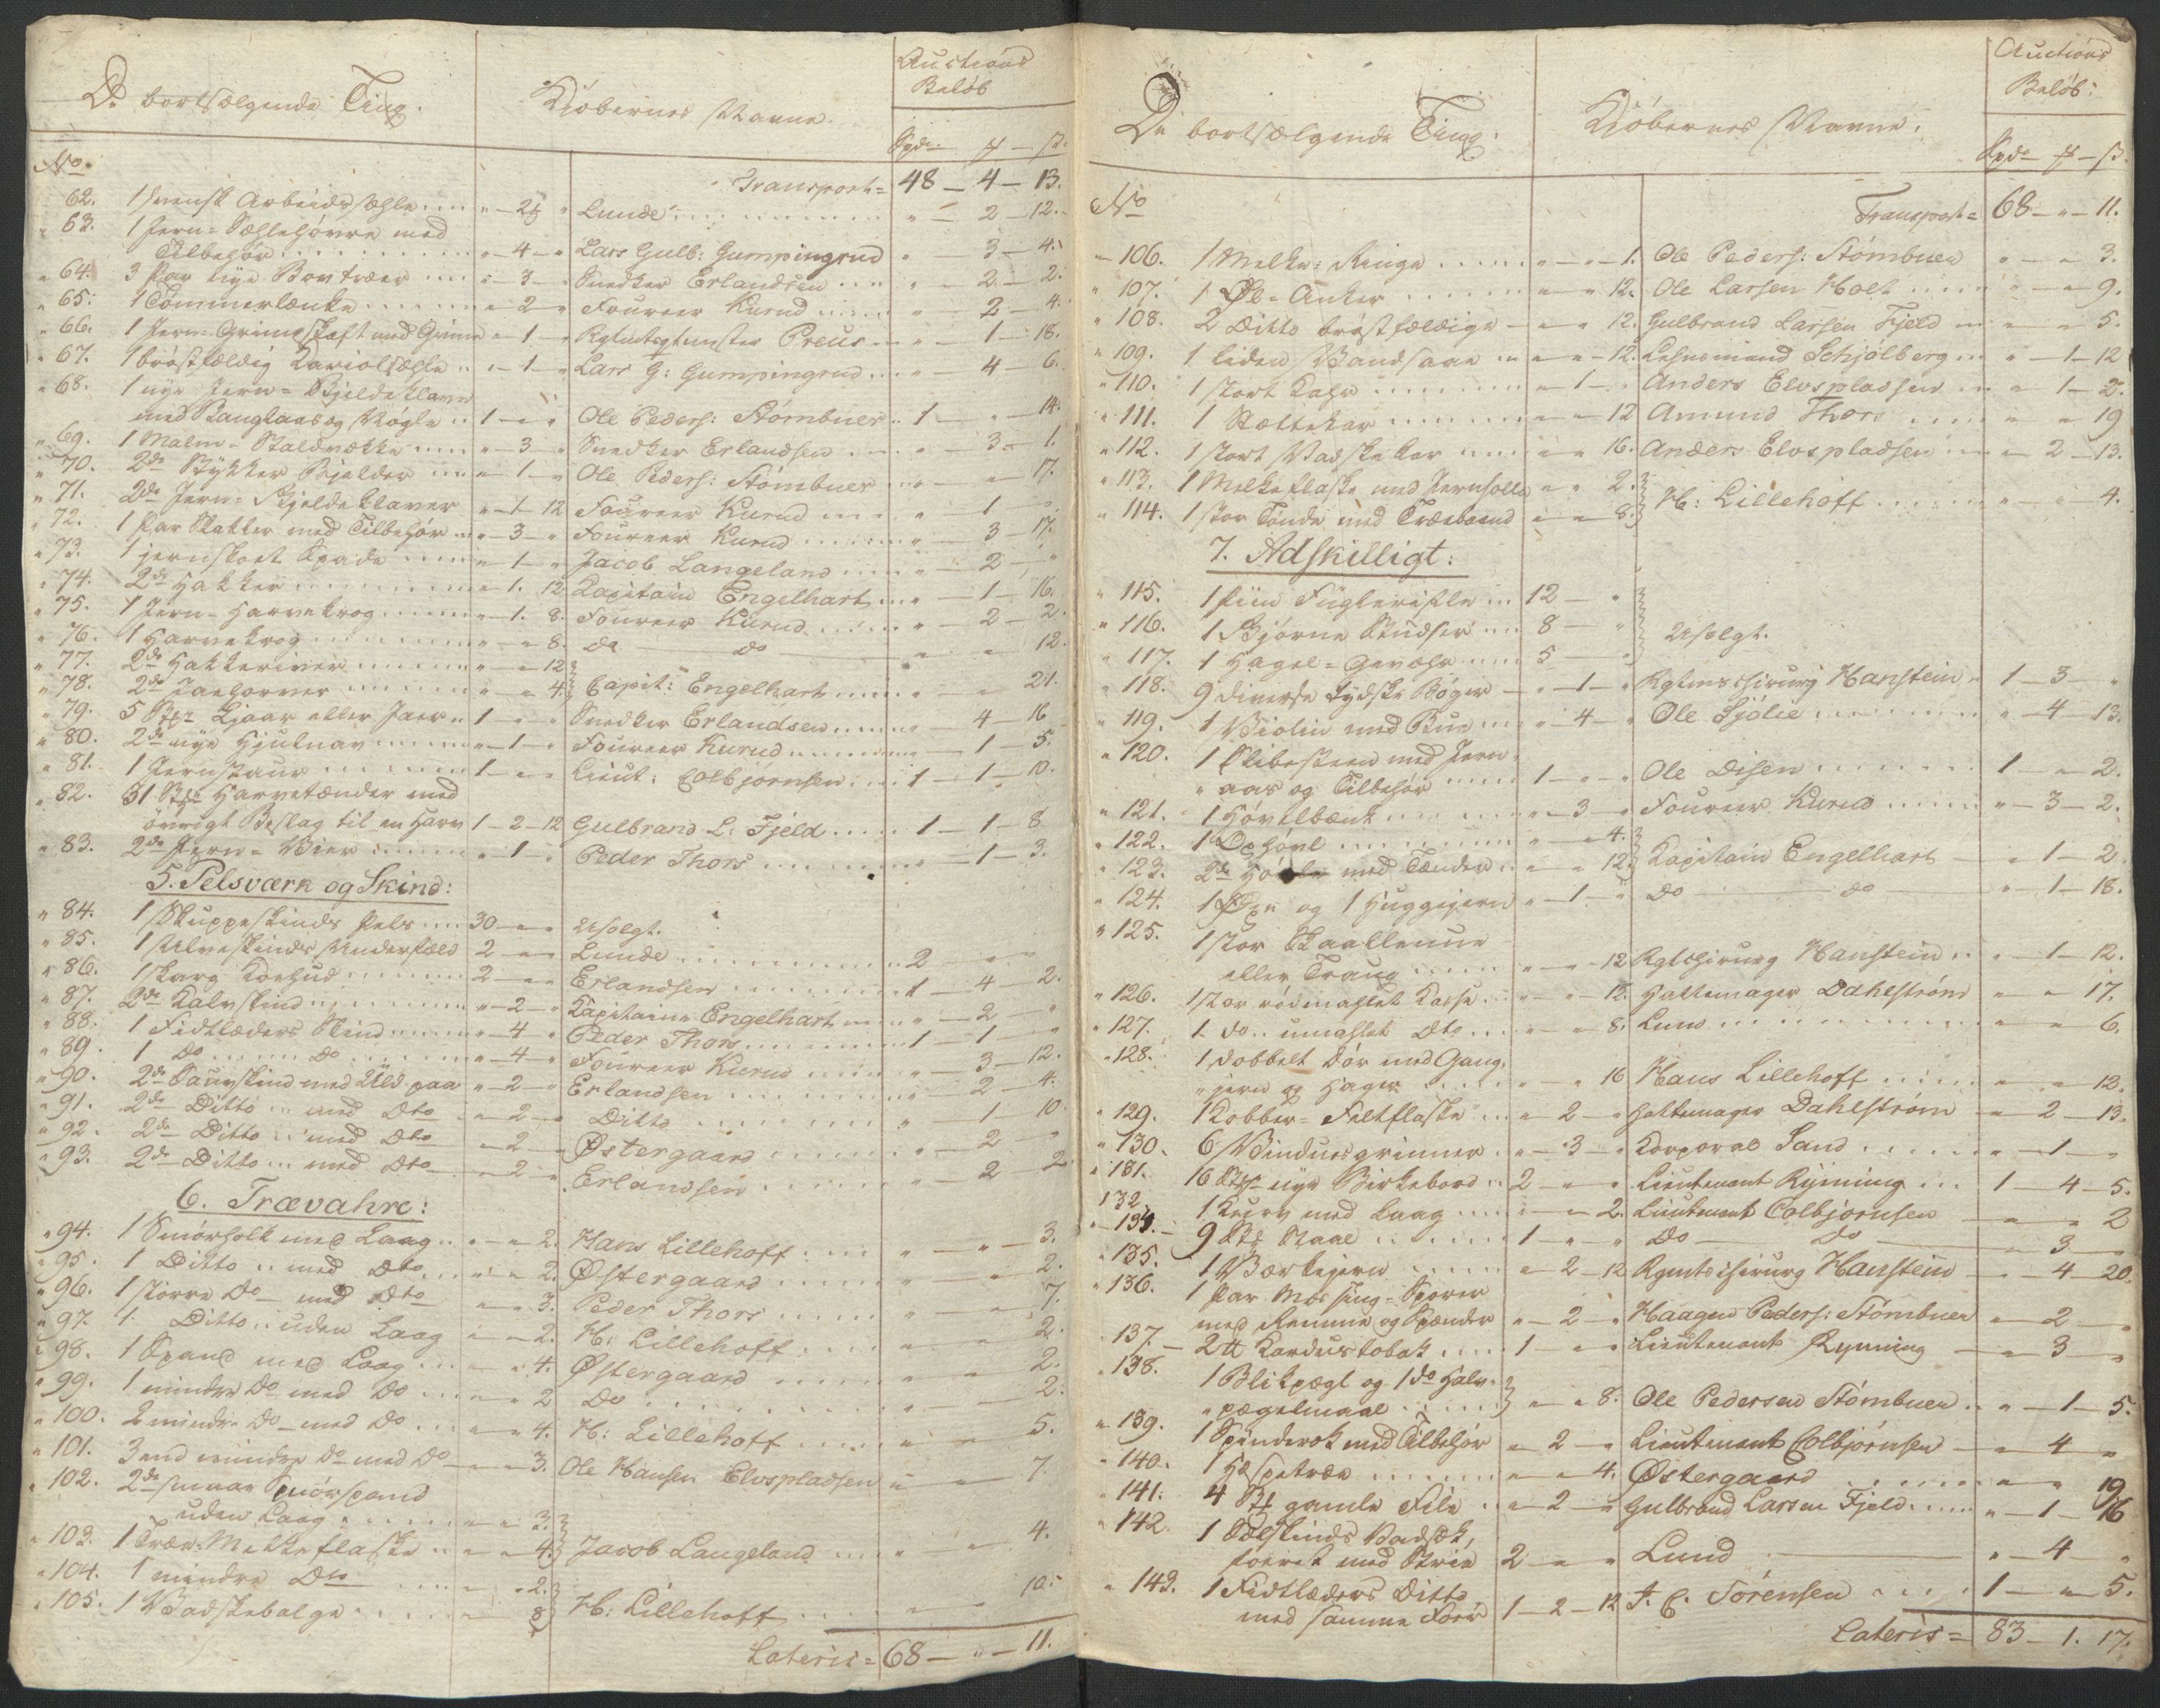 De bortsælgende Ting.
Kjöbernes Navne.
Auctions Beløb
No.
Spd. - # - ß.
Transport = 48 - 4 - 13.
62. 1 svensk Arbeidssæhle .... Lunde .... " - 2 - 12.
63. 1 Jern-Sæhlehövre med
Tilbehör .... " - 4 - " Lars Gulb: Gumpingrud " - 3 - 4.
" 64. 3 Par nye Bovtræer .... " - 3 - " Snedker Erlandsen .... " - 2 - 2.
" 65: 1 Tömmerlænke .... " - 2 - " Foureer Kurud .... " - 2 - 4.
" 66. 1 Jern-Grimeskaft med Grime " - 1 - " Preus .... " - 1 - 18.
" 67. 1 bröstfældig Kariolsæhle .. " - 1 - " Lars G: Gumpingrud .... " - 4 - 6.
" 68. 1 nye Jern-Bjeldeklave
med Bauglaas og Nögle .. 1 - " - " Ole Peders: Stömbuer .. 1 - " - 14.
" 69. 1 Malm-Staldrække .... " - 3 - " Snedker Erlandsen .... " - 3 - 1.
" 70. 2de Stykker Bjelder .... " - 1 - " Ole Peders: Stömbuer .... " - " - 17.
" 71. 2de Jern-Bjeldeklaver " - 1 - 12 Foureer Kurud .... " - 1 - "
" 72. 1 Par Skakler med Tilbehör .. " - 3 - " Foureer Kurud .... " - 3 - 17.
" 73. 1 jernskoet Spade .... " - 1 - " Jacob Langeland .... " - 2 - "
" 74. 2de Hakker .... " - 1. 12. Kapitain Engelhart .... " - 1 - 16.
" 75. 1 Jern-Harvekrog .... " - 1. 8. Foureer Kurud .... " - 2 - 2.
" 76. 1 Harvekrog .... " - " 8. do do " - " 12.
" 77. 2de Hakkeriver .... " - " - 12
" 78. 2de Jaehorver .... " - " 4. Capit: Engelhart .... " - " - 21.
" 79. 5 Stkr Ljaar eller Jaer .. 1 - " - " Snedker Erlandsen .... " - 4 - 16
" 80. 2de nye Hjulnav .... " - 1 - " Foureer Kurud .... " - 1 - 5.
" 81. 1 Jernstaur .... 1 - " - " Lieut: Colbjørnsen .... 1 - 1 - 10.
" 82. 31 Stkr Harvetænder med
övrigt Beslag til en Harv 1 - 2 - 12 Gulbrand L: Fjeld .... 1 - 1 - 8
" 83. 2de Jern-Vier .... " - 1 - " Peder Thors .... " - 1 - 3.
5. Pelsværk og Skind:
" 84. 1 Skuppeskinds Pels .... 30 - " - " Usolgt.
" 85. 1 Ulveskinds Underfæld 2 - " - " Lunde .... 2 - " - "
" 86. 1 Koehud .... 2 - " - " Erlandsen .... 1 - 4 - 2.
" 87. 2de Kalvskind .... " - 2 - " Kapitaine Engelhart .... " - 2 - "
" 88. 1 Fidtlæders Skind .... " - 4 - " Peder Thors .... 1 - 1 - "
" 89. 1 do .... do .... " - 4 - " Foureer Kurud .... " - 3 - 12.
" 90. 2de Sauvskind med Uld paa " - 2 - " Erlandsen .... " - 2 - 4.
" 91. 2de Ditto .. med Dto " - 2 - " Ditto .... " - 1 - 10.
" 92. 2de Ditto .. med Dto " - 2 - " Østergaard .... " - 2 - "
" 93. 2de Ditto ... med Dto " - 2 - " Erlandsen .... " - 2 - 2
6. Trævahre:
" 94. 1 Smörholk med Laag .. " - " 2. Hans Lillehoff .... " - " - 3.
" 95. 1 Ditto .. med Dto .... " - " 2. Østergaard .... " - " 2.
" 96. 1 större Do med Dto " - " 3. Peder Thors .... " - " 7.
" 97. 1. Ditto .. uden Laag " - " 2. H: Lillehoff .... " - " 2.
" 98. 1 Spand med Laag .... " - " 4. Østergaard .... " - " 2.
" 99. 1 mindre Do med Do .... " - " 2 Do .... " - " 2.
" 100. 2 mindre Do med Do .... " - " 4. H: Lillehoff .... " - " 5.
" 101. 3 end mindre Do med Do " - " 3. Ole Hansen Elvspladsen " - " 7.
" 102. 2de smaae Smörspand
uden Laag .... " - " 3.
" 103. 1 Træ-Melkeflaske .. " - " 4. Jacob Langeland .... " - " 4.
" 104. 1 mindre Dto .... " - " 2.
" 105. 1 Vadskebalge .... " - 8 H: Lillehoff .... " - " 10.
Lateris = 68 - " - 11.
De bortsælgende Ting:
Kjöbernes Navne.
Auctions Beløb:
No
Spd. - # - ß.
Transport = 68 - " - 11.
" 106. 1 Melke-Ringe .... " - " - 1. Ole Peders: Stömbuen " - " 3.
" 107. 1 Øl-Anker .... " - " 12. Ole Larsen Holt .... " - " 9.
" 108. 2 Ditto bröstfældige " - " 12. Gulbrand Larsen Fjeld " - " 5.
" 109. 1 liden Vandsaae .. " - " - 12. Lehnsmand Schjölberg .. " - 1 - 12
" 110. 1 stort Kahr .... " - 1 - " Anders Elvspladsen .. " - 1 - 2.
" 111. 1 Kar .... " - " 12 Amund Thors .... " - " 19
" 112. 1 stort Vadskekar .... " - " 16. Anders Elvspladsen .. " - 2 - 13.
" 113. 1 Melkeflaske med Jernholk " - " 2.
" 114. 1 stor Tönde med Træbaand " - " 8. H: Lillehoff .... " - " 4.
7. Adskilligt:
" 115. 1 fiin Fuglerifle .. 12 - "
" 116. 1 Bjørne Studser .. 8 - " Usolgt.
" 117. 1 Hagel-Gevæhr .... 5 - "
" 118. 9 diverse Tydske Böger " - 1 - " Rgtmschirurg Hanstein 1 - 3 - "
" 119. 1 Violin med Bue .. " - 4 - " Ole Sjölie .... " - 4 - 13.
" 120. 1 Slibesteen med Jern
" aas og Tilbehör .... 1 - " - " Ole Disen .... 1 - " - 2.
" 121. 1 Hövelbænk .... " - 3 - " Foureer Kurud .... " - 3 - 2.
" 122. 1 Oxhövl .... " - " 4.
" 123. 2de Hövle med Tænder .. " - " 12. Kapitain Engelhart " - 1 - 2.
" 124. 1 Øxe og 1 Huggejern " - 1 - " Do do " - 1 - 18.
" 125. 1 stor
eller Traug .... " - " - 12 Rgtschirurg Hanstein .. " - 1 - 12.
" 126. 1 stor rödmahlet Kasse .. " - " 12. Hattemager Dahlström " - " 17.
" 127. 1 do .. umahlet Dto .... " - " 8. Lund .... " - " 6.
" 128. 1 dobbelt Dör med Gang-
" jern og Hager .... " - " 16 Hans Lillehoff .... " - " 12.
" 129. 1 Kobber-Feltflaske .. " - 2 - " Hattemager Dahlström " - 2 - 13.
" 130. 6 Vinduesgrinner .. " - 3 - " Korporal Sand .... " - 1 - "
" 131. 16 Stkr nye Birkebord .. 2 - " - " Lieutenant Rynning .. 1 - 4 - 5.
132. 1 Kurv med Laag .... " - " 2. Lieutenant Colbjornsen " - " 2
" 134. 9 Staal .... 1 - " - " Do Do " - 3 - "
" 135. 1 Værkejern .... " - 2 - 12 Rgmtschirurg Hanstein " - 4 - 20.
" 136. 1 Par Messing-Sporer
med Remme og Spænder " - 2 - " Haagen Peders: Stömbuen " - 2 - "
" 137. 2 ℔ Kardustobak .... 1 - " - " Lieutenant Rynning " - 3 - "
" 138. 1 Blikpægl og 1 do Halv-
" pægelmaal .... " - " 8. Ole Pedersen Stömbuen .. " - 1 - 5.
" 139. 1 Spinderok med Tilbehör " - 2 - " Lieutenant Colbjørnsen " - 4 - "
" 140. 1 Hespetræe .... " - " 4. Østergaard .... " - " 19
" 141: 4 gamle File .. " - 2 - " Gulbrand Larsen Fjeld .... " - 1 - 16
" 142. 1 Sælskinds Vadsæk,
foeret med Strie 2 - " - " Lund " - 4 - "
" 143. 1 Fidtlæders Ditto
med samme Foer 1 - 2 - 12 J. C. Sörensen .... 1 - " - 5.
Lateris = 83 - 1. 17.